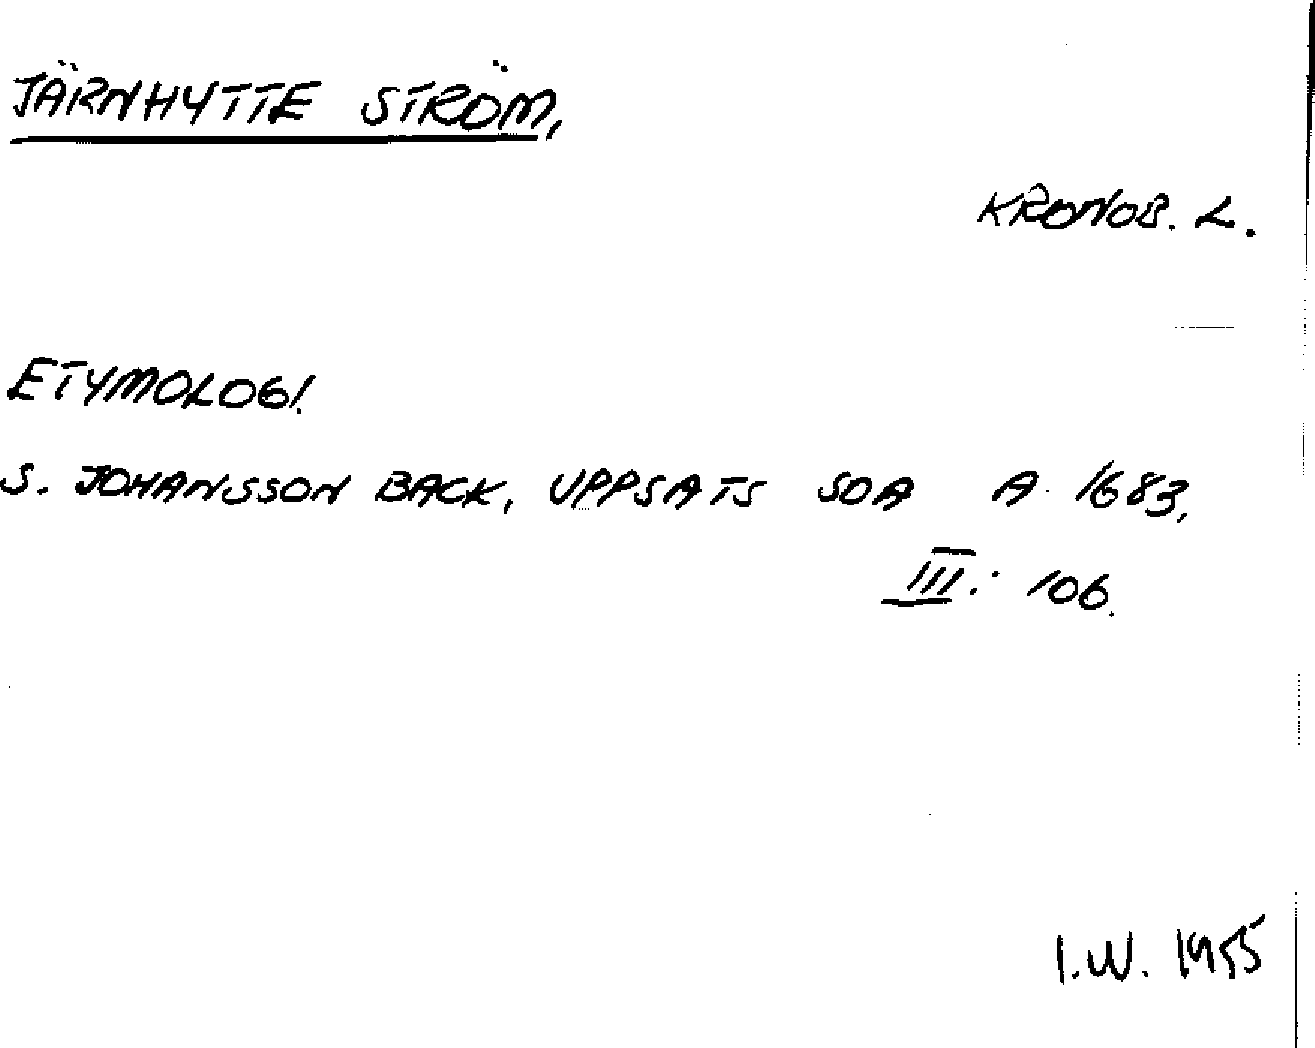 JÄRNHYTTE STRÖM,
KRONOB. L.
ETYMOLOGI.
S. JOHANSSON BACK, UPPSATS SOA A. 1683,
III: 106.
I.W. 1955